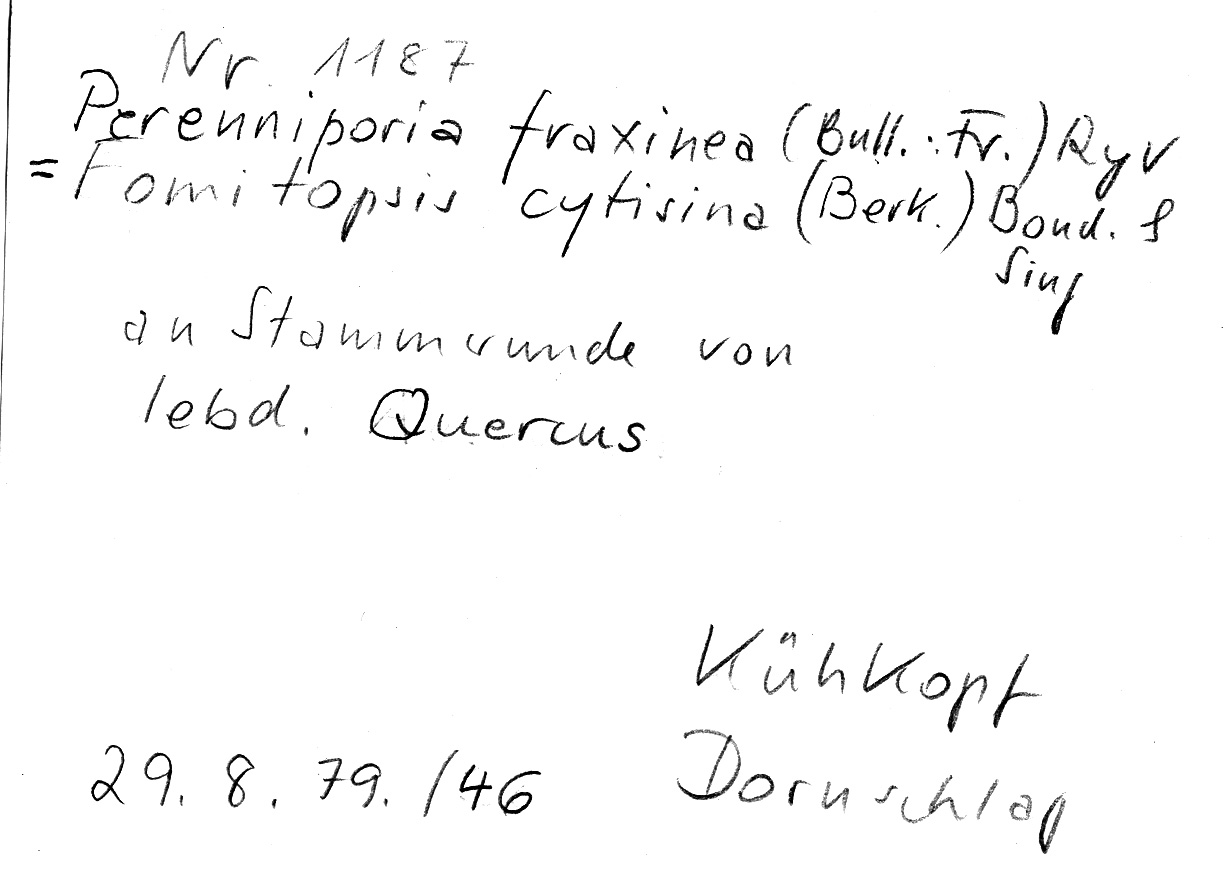 Nr. 1187
Perenniporia fraxinea (Bull.: Fr.) Ryv
= Fomitopsis cytisina (Berk.) Bond. &
Sing
an Stammwunde von
lebd. Quercus
Kühkopf
29. 8. 79. /46 Dornschlag